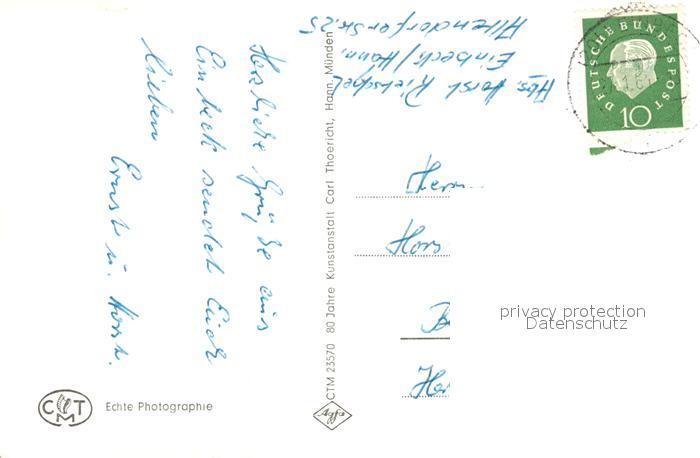 Herzliche Grüße aus
Einbeck sendet Euch
Lieben
Ernst u. Horst.
Abs. Horst Rietschel
Einbeck/Hann.
Altendorferstr. 25
DEUTSCHE BUNDESPOST
10
Herrn
Hors
B
He
privacy protection
Datenschutz
CTM 23570 80 Jahre Kunstanstalt Carl Thoericht, Hann. Münden
Agfa
CTM
Echte Photographie